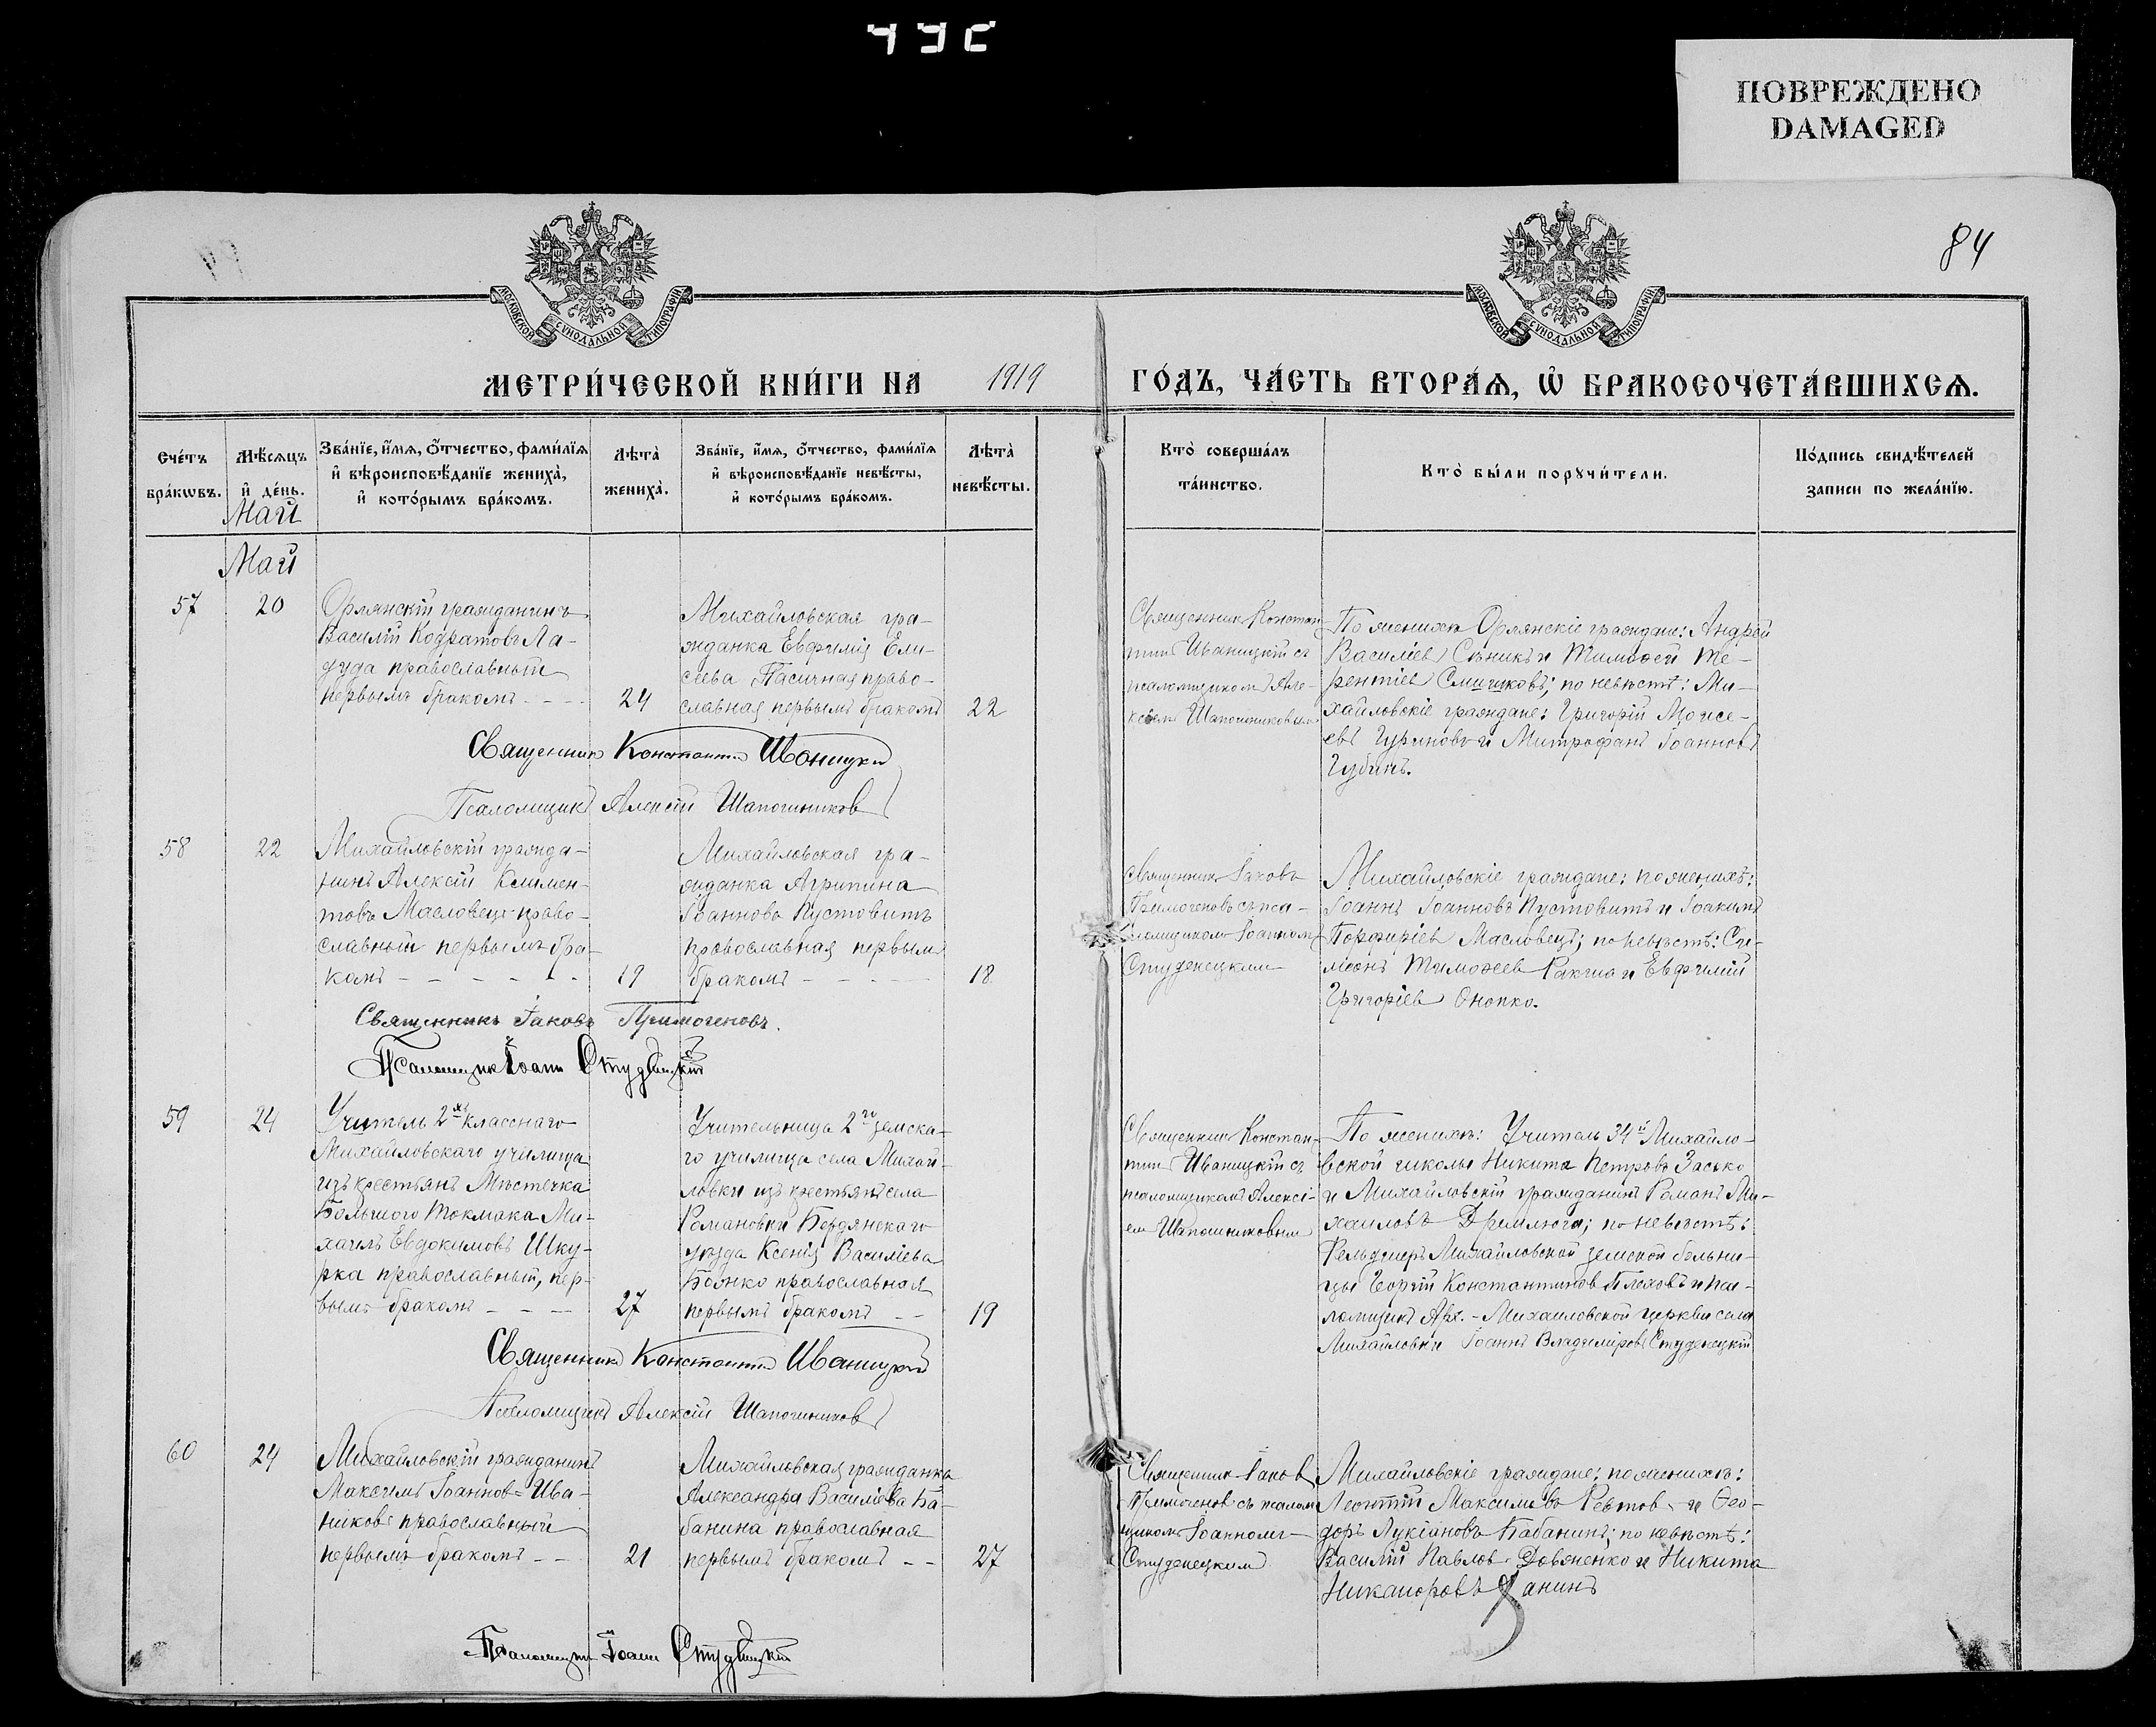 ПОВРЕЖДЕНО
DAMAGED
84
МОСКОВСКОЙ СУНОДАЛЬНОЙ ТИПОГРАФІИ
МОСКОВСКОЙ СУНОДАЛЬНОЙ ТИПОГРАФІИ
МЕТРИ́ЧЕСКОЙ КНИ́ГИ НА 1919 ГО́ДЪ, ЧА́СТЬ ВТОРА́Ѧ, Ѡ҆ БРАКОСОЧЕТА́ВШИХСѦ.
Сче́тъ
бра́кѡвъ.
Мѣ́сѧцъ
и҆ де́нь.
Май
Зва́нїе, и҆́мѧ, ѻ҆́тчество, фами́лїѧ
и҆ вѣроисповѣ́данїе жениха̀,
и҆ кото́рымъ бра́комъ.
Лѣта̀
жениха̀.
Зва́нїе, и҆́мѧ, ѻ҆́тчество, фами́лїѧ
и҆ вѣроисповѣ́данїе невѣ́сты,
и҆ кото́рымъ бра́комъ.
Лѣта̀
невѣ́сты.
Кто̀ соверша́лъ
та́инство.
Кто̀ бы́ли порꙋчи́тели.
По́дпись свидѣ́телей
записи по жела́нїю.
Май
57
20
Орлянскій гражданинъ
Василій Кодратовъ Ла-
дуда православный
первымъ бракомъ - - -
24
Михайловская гра-
жданка Евфимія Ели-
сеева Пасичная право-
славная первымъ бракомъ
22
Священникъ Констан-
тинъ Иваницкій съ
псаломщикомъ Але-
ксѣемъ Шапошниковымъ
По женихѣ Орлянскіе граждане: Андрей
Василіевъ Сѣникъ и Тимоѳей Те-
рентіевъ Смишковъ; по невѣстѣ: Ми-
хайловскіе граждане: Григорій Моисе-
евъ Гуриновъ и Митрофанъ Іоанновъ
Губинъ.
Священникъ Константинъ Иваницкій
Псаломщикъ Алексій Шапошниковъ
58
22
Михайловскій гражда-
нинъ Алексій Климен-
товъ Масловецъ право-
славный первымъ бра-
комъ - - - - - -
19
Михайловская гра-
жданка Агрипина
Іоаннова Пустовитъ
православная первымъ
бракомъ - - - -
18
Священникъ Іаковъ
Примогеновъ съ пса-
ломщикомъ Іоанномъ
Студенецкимъ
Михайловскіе граждане: по женихѣ:
Іоаннъ Іоанновъ Пустовитъ и Іоакимъ
Порфиріевъ Масловецъ; по невѣстѣ: Си-
меонъ Тимоѳеевъ Ракша и Евфимій
Григоріевъ Онопко.
Священникъ Іаковъ Примогеновъ.
Псаломщикъ Іоаннъ Студенецкій
59
24
Учитель 2хъ класснаго
Михайловскаго училища
изъ крестьянъ Мѣстечка
Большого Токмака Ми-
хаилъ Евдокимовъ Шку-
рка православный, пер-
вымъ бракомъ - - -
27
Учительница 2го земска-
го училища села Михай-
ловки изъ крестьянъ села
Романовки Бердянскаго
уѣзда Ксенія Василіева
Бойко православная
первымъ бракомъ - -
19
Священникъ Констан-
тинъ Иваницкій съ
псаломщикомъ Алексі-
емъ Шапошниковымъ
По женихѣ: Учитель 34й Михайло-
вской школы Никита Петровъ Засько
и Михайловскій гражданинъ Романъ Ми-
хаиловъ Дрилюга; по невѣстѣ:
Фельдшеръ Михайловской земской больни-
цы Георгій Константиновъ Плеховъ и пса-
ломщикъ Арх.-Михаиловской церкви села
Михайловки Іоаннъ Владиміровъ Студенецкій
Священникъ Константинъ Иваницкій
Псаломщикъ Алексій Шапошниковъ
60
24
Михайловскій гражданинъ
Максимъ Іоанновъ Ива-
никовъ православный
первымъ бракомъ - -
21
Михайловская гражданка
Александра Василіева Ба-
банина православная
первымъ бракомъ - -
27
Священникъ Іаковъ
Примогеновъ съ псалом-
щикомъ Іоанномъ
Студенецкимъ
Михайловскіе граждане: по женихѣ:
Леонтій Максимовъ Ревтовъ и Ѳео-
доръ Лукіановъ Бабанинъ; по невѣстѣ:
Василій Павловъ Довяненко и Никита
Никаноровъ
Псаломщикъ Іоаннъ Студенецкій